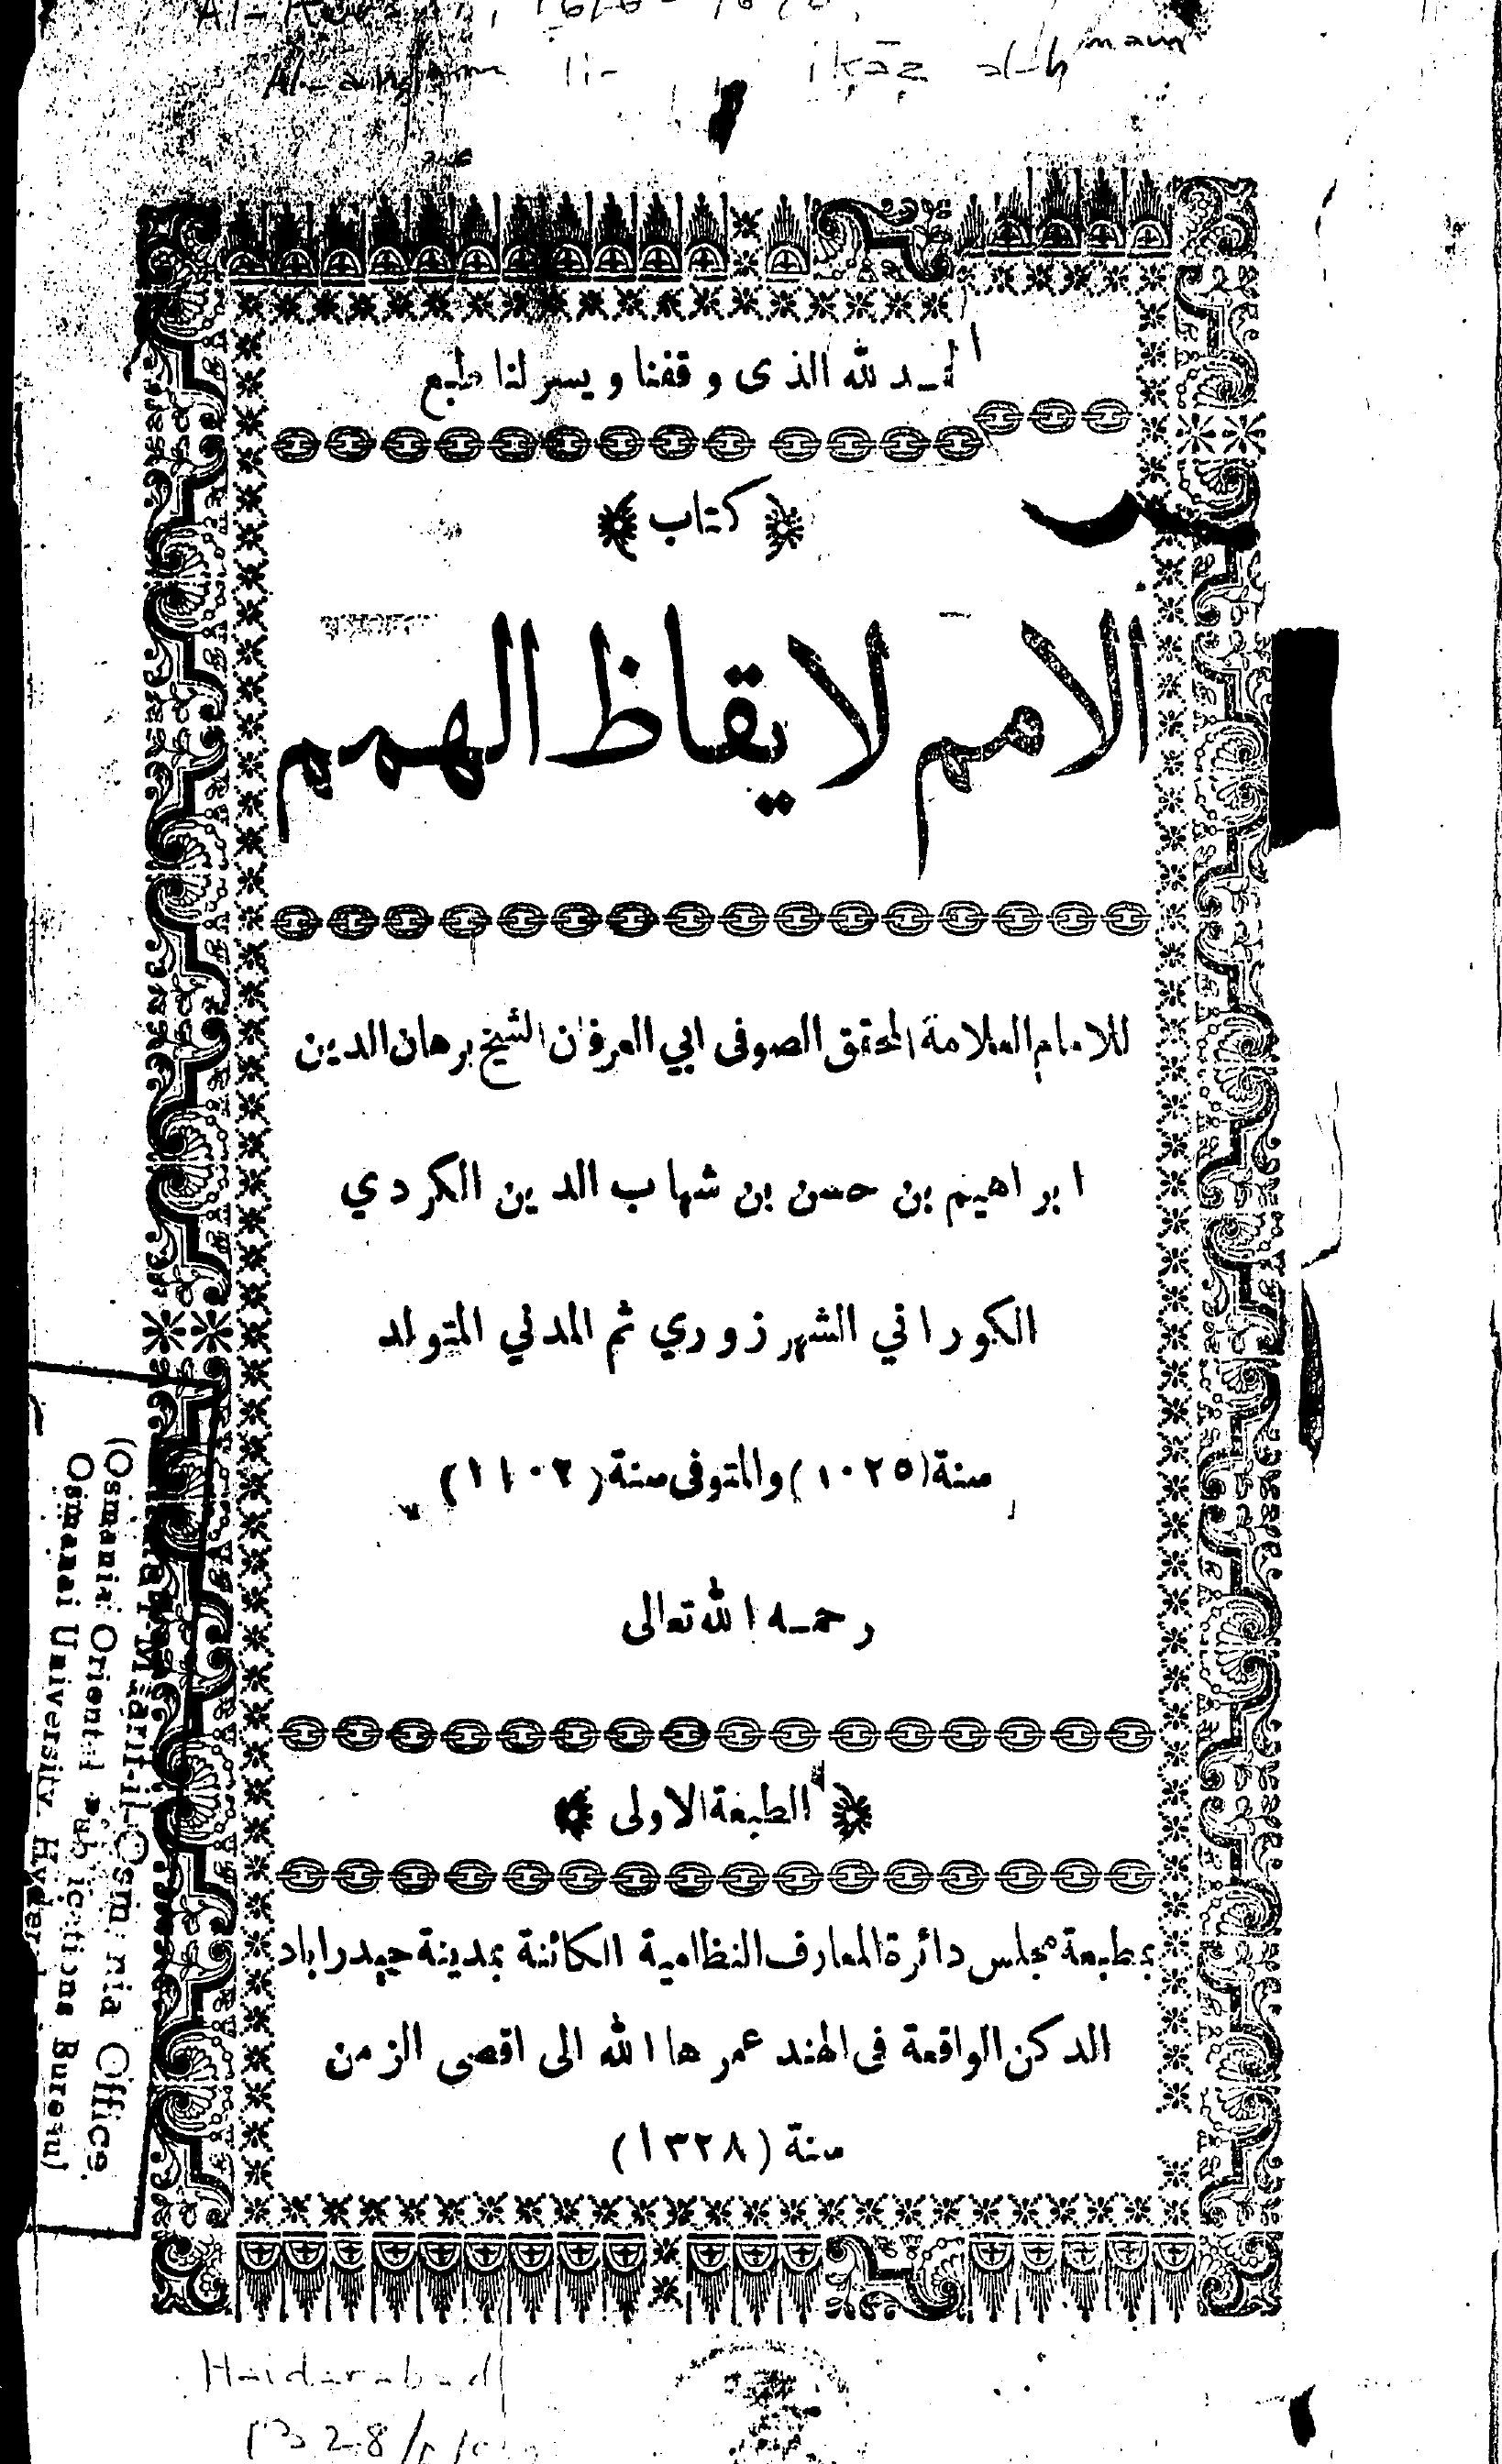 الحمد لله الذى وفقنا ويسر لنا طبع
كتاب
الامم لايقاظ الهمم
للامام العلامة المحقق الصوفى ابي العرفان الشيخ برهان الدين
ابراهيم بن حسن بن شهاب الدين الكردي
الكوراني الشهرزوري ثم المدني المتولد
سنة (١٠٢٥) والمتوفى سنة (١١٠٢)
رحمه الله تعالى
الطبعة الاولى
بمطبعة مجلس دائرة المعارف النظامية الكائنة بمدينة حيدراباد
الدكن الواقعة فى الهند عمرها الله الى اقصى الزمن
سنة (١٣٢٨)
Osmania Office.
(Osmania Oriental Publications Bureau)
Osmanai University, Hyder
Haidarabad
1328/